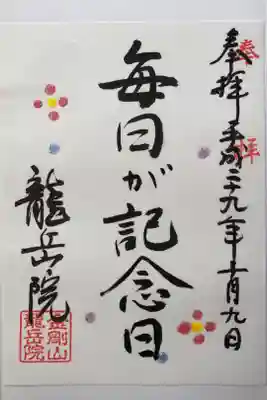 奉拝 平成二十九年十月九日
奉拝
毎日が記念日
龍岳院
金剛山
龍岳院